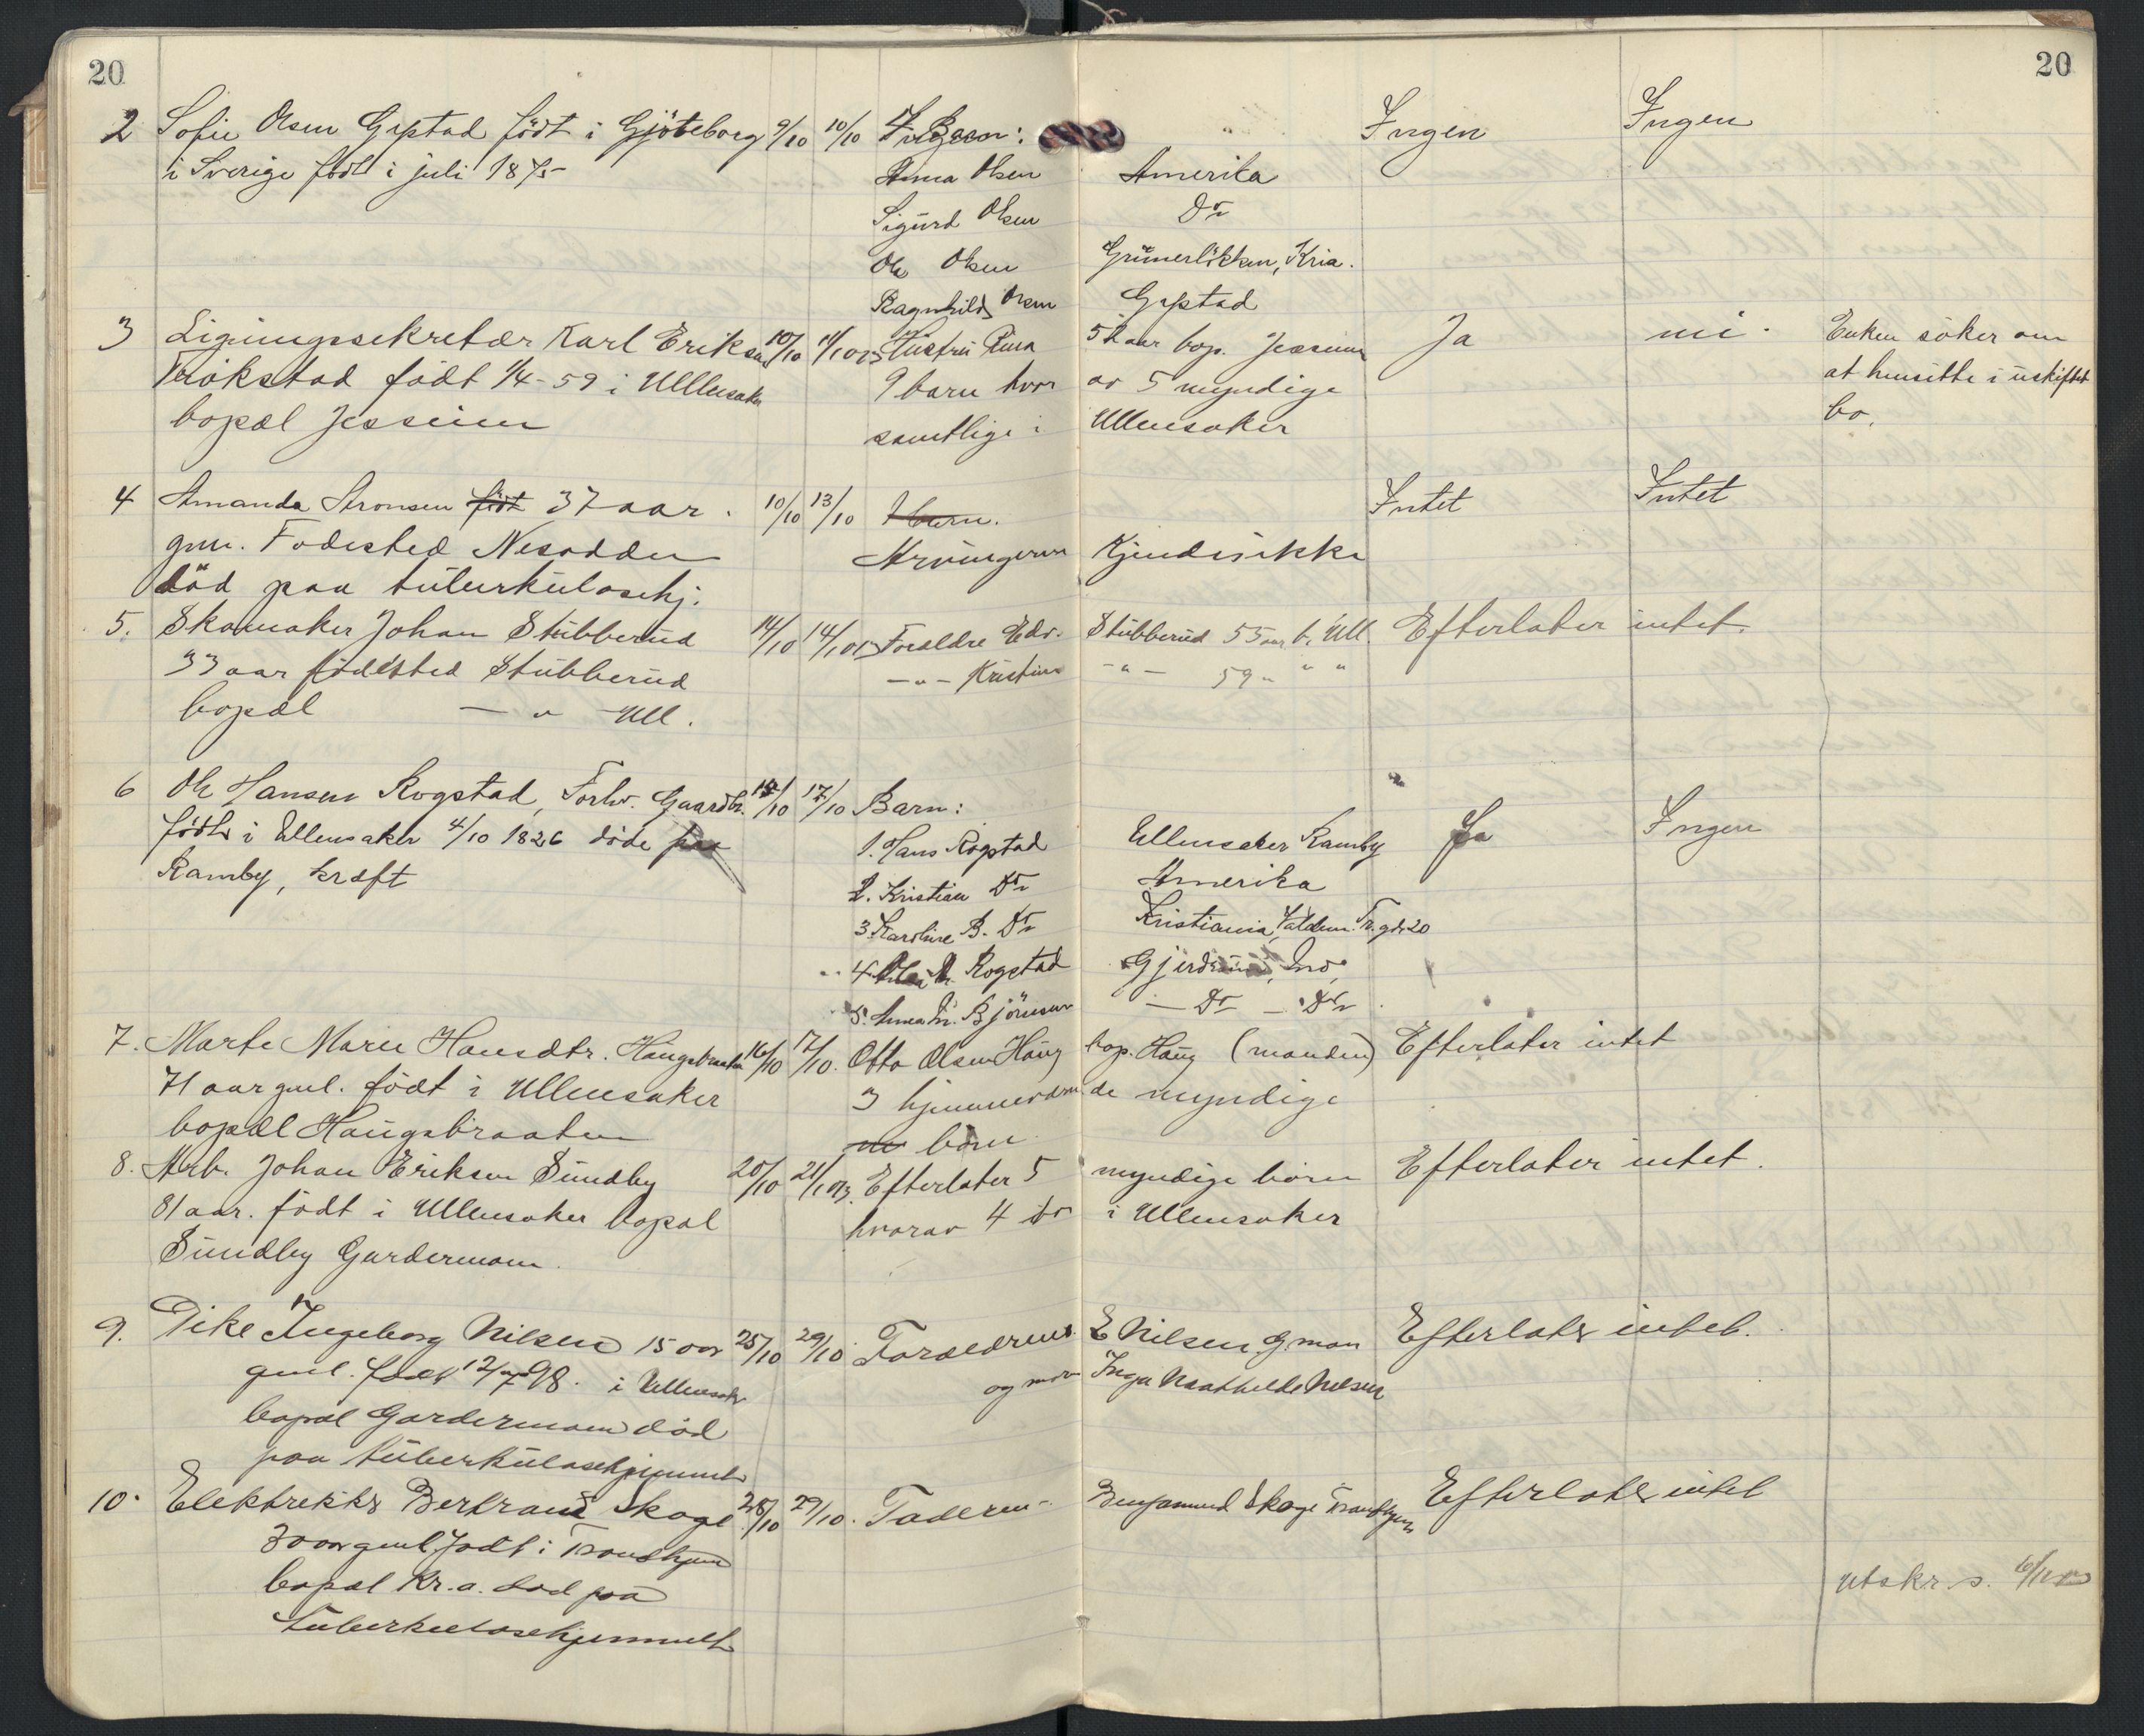 20
20
2 Sofie Olsen Grpstad födt i Gjöteborg 9/10 10/10 Barn: Ingen Ingen
i Sverige födt i juli 1875 Anna Olsen Amerika
Sigurd Olsen Do
Ole Olsen Grünerlökken, Kria.
Ragnhild Olsen
3 Ligningssekretær Karl Eriksen 10/10 11/10 Hustru 52 aar bop. Jessum Ja nei. Enken söker om
födt 1/4-59 i Ullensaker 9 barn hvor av 5 myndige at hensitte i uskiftet
bopæl Jesseim samtlige i Ullensaker bo.
4 Amanda Aronsen födt 37 aar. 10/10 13/10 Intet Intet
gml. Födested Nesodden Arvingerne Kjendes ikke
död paa tuberkulosehj.
5. Skomaker Johan Stubberud 14/10 14/10 Foreldre Edv. Stubberud 55 aar b. Ull. Efterlater intet.
33 aar födested Stubberud -"- Kristine -"- 59 " " "
bopæl -"- Ull.
6 Ole Hansen Rogstad, Forhv. Gaardbr. 17/10 Barn: Ja Ingen
födt i Ullensaker 4/10 1826 döde paa 1. Hans Rogstad Ullensaker Ramby
Ramby, kræft 2. Kristian Do Amerika
3 Karoline B. Do Kristiania, Valdem. Tr. gd. 20
4 Rogstad Gjerdrum, Ind
5. Anna M. Björnsen - Do - Do
7. Marte Marie Hansdtr. Haugsbraaten 16/10 17/10. Otto Olsen Haug bop. Haug (manden) Efterlater intet
71 aar gml. födt i Ullensaker 3 hjemmeværende myndige
bopæl Haugsbraaten börn
8. Arb. Johan Eriksen Sundby 20/10 21/10 Efterlater 5 myndige börn Efterlater intet.
81 aar. födt i Ullensaker bopæl hvorav 4 i Ullensaker
Sundby Gardermoen.
9. Pike Ingeborg Nilsen 15 aar 25/10 29/10 Foreldrene E Nilsen G.moen Efterlater intet.
gml. födt 12/7 98. i Ullensaker og mor Inga Maathilde Nilsen
bopæl Gardermoen död
paa tuberkulosehjemmet
10. Elektriker Bertrand Skoge 28/10 29/10. Faderen Skoge Trondhjem Efterlater intet
30 aar gml. födt i Trondhjem
bopæl Kr.a. död paa
tuberkulosehjemmet
utskr. s. 6/11